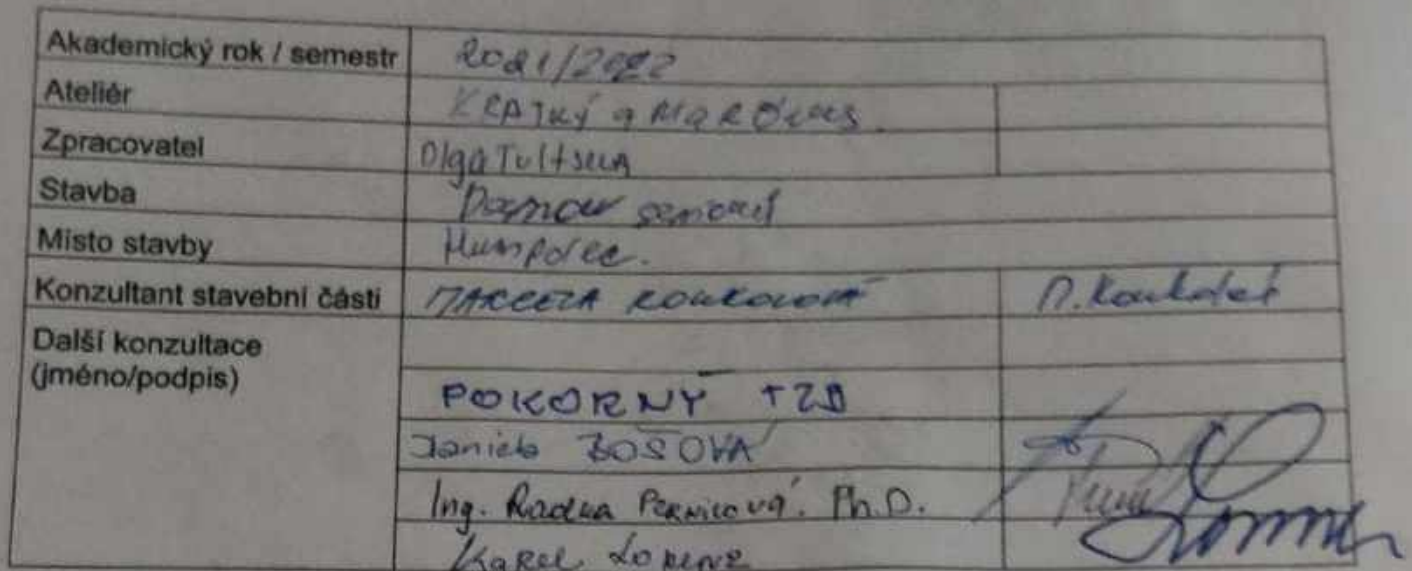 Akademický rok / semestr 2021/2022
Ateliér KRATKÝ a
Zpracovatel Olga
Stavba Domov seniorů
Místo stavby Humpolec.
Konzultant stavební části
Další konzultace
(jméno/podpis)
POKORNÝ TZB
Daniela BOŠOVÁ
Ing. Radka Pernicová. Ph.D.
Karel Lorenz